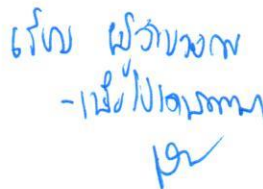 เรียน ผู้อำนวยการ
- เพื่อโปรดพิจารณา